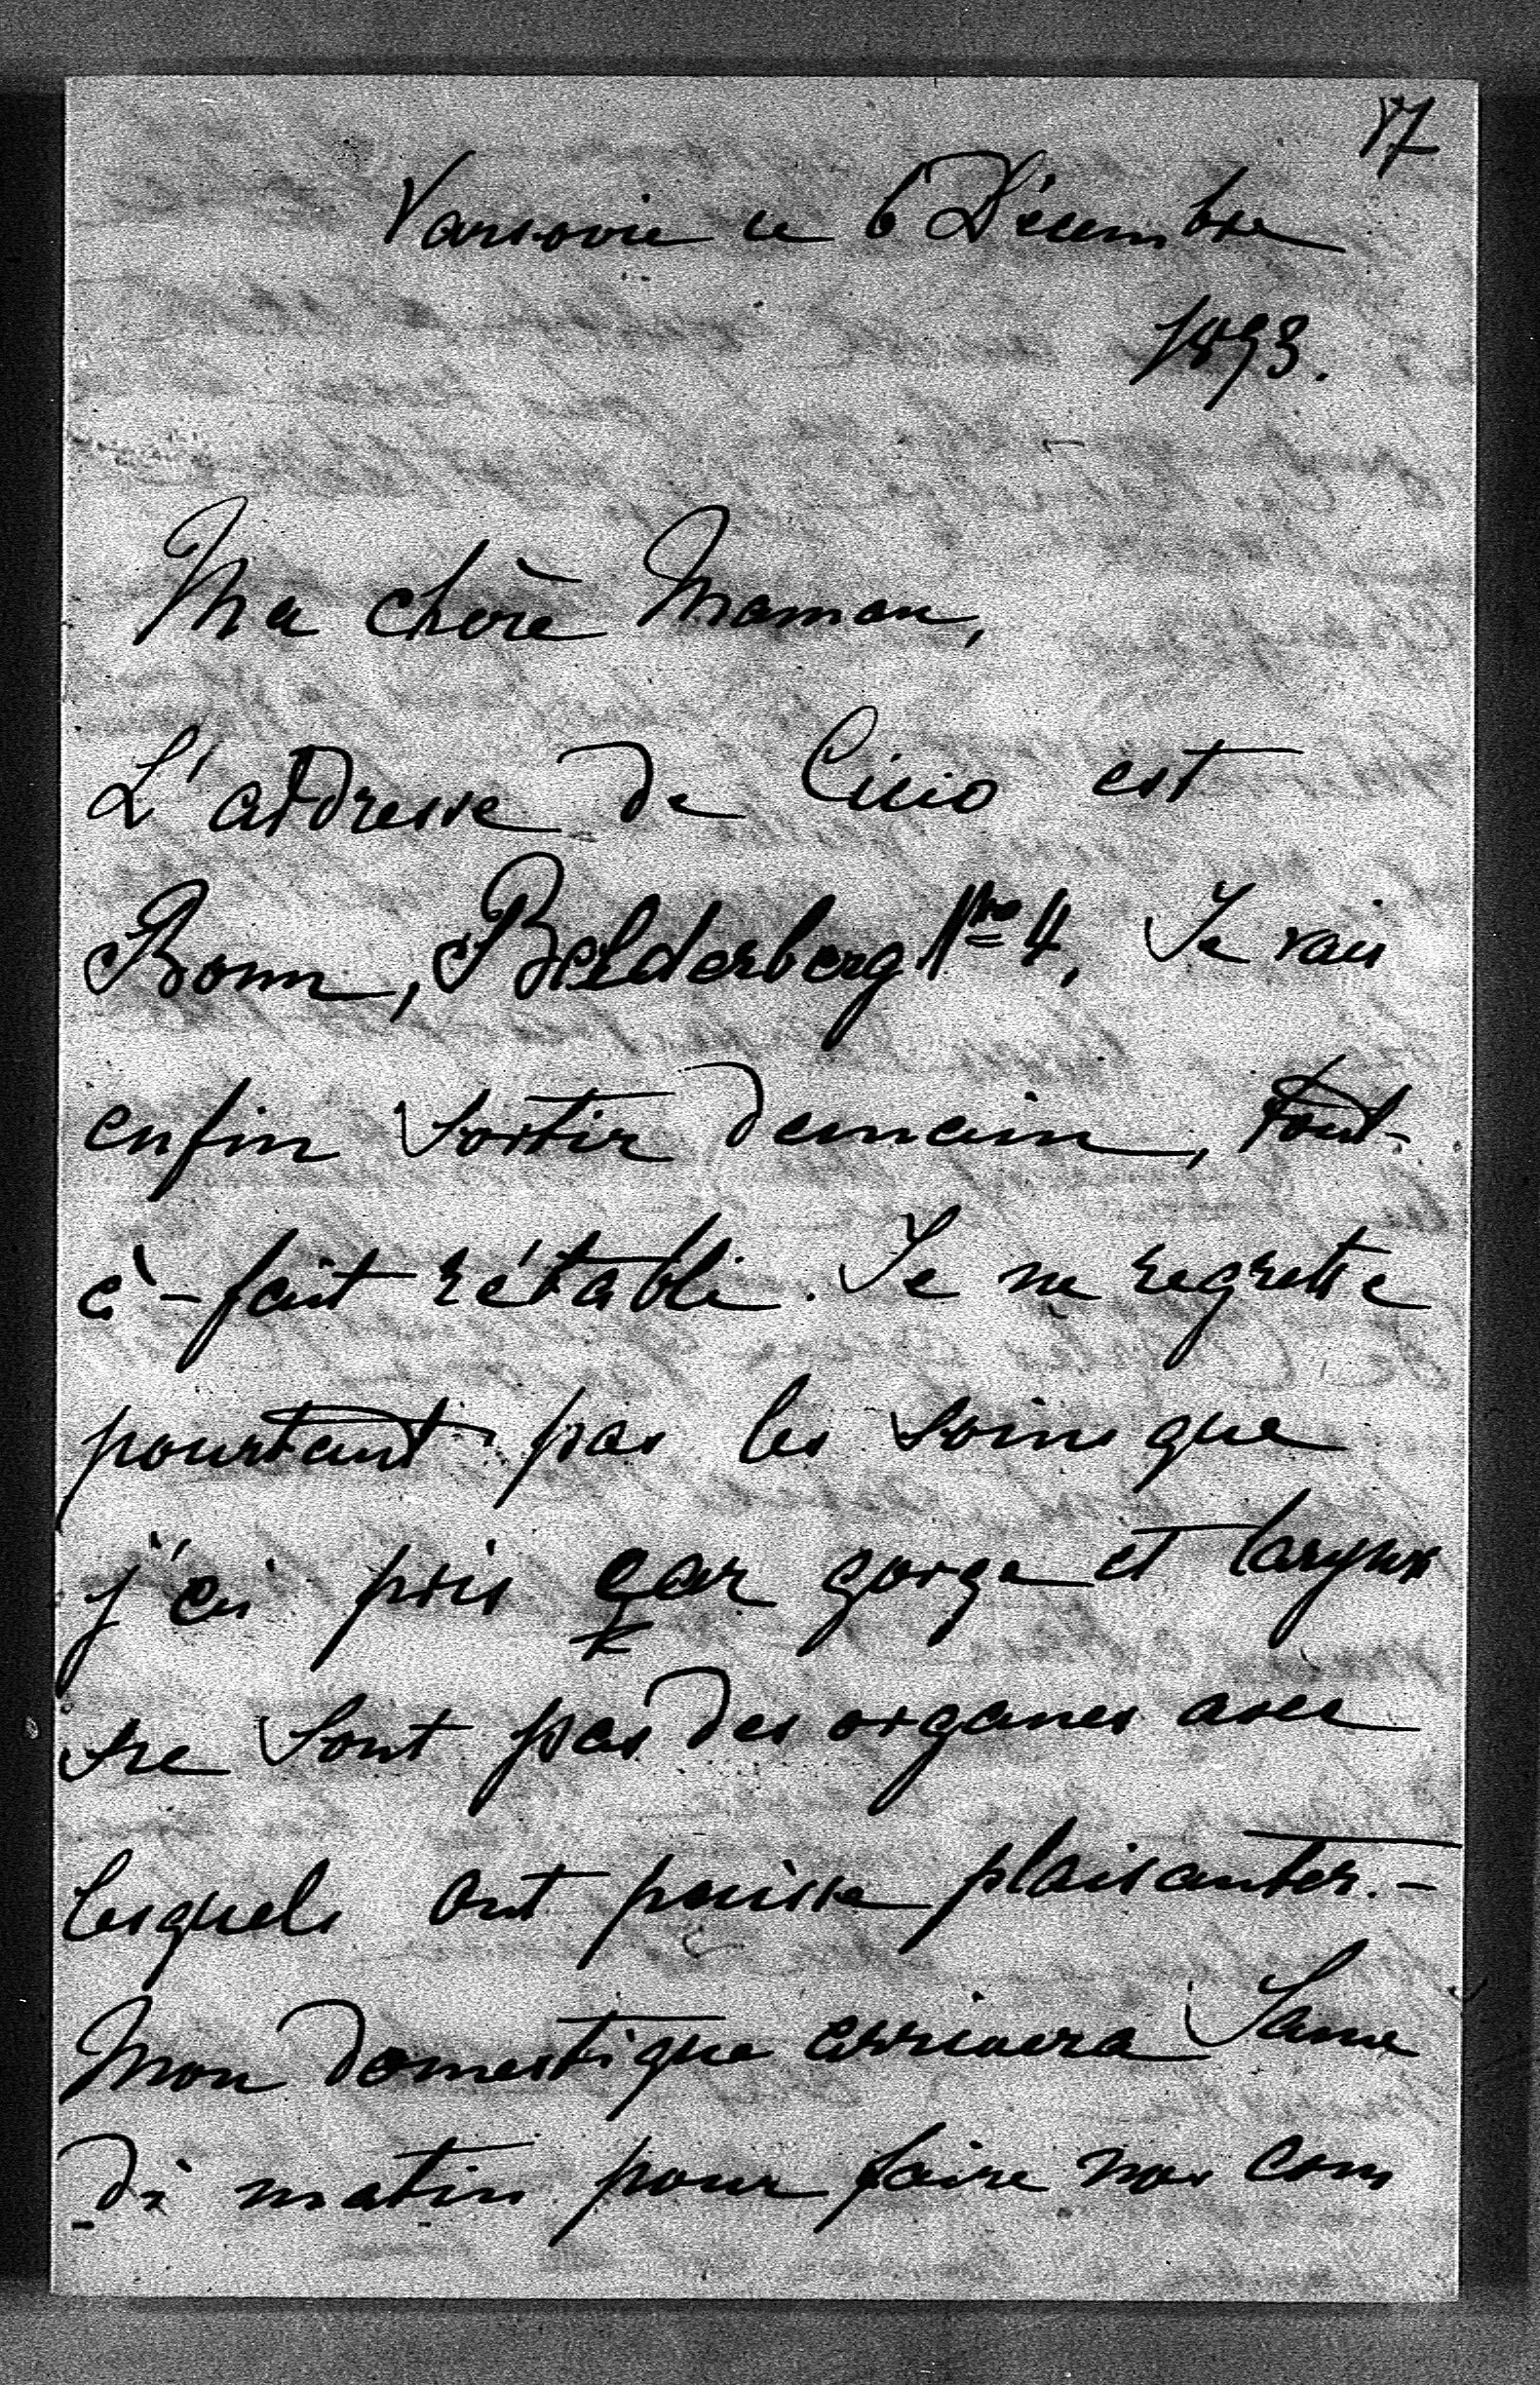 87
Varsovie ce 6 Décembre
1893.
Ma chère Maman,
L'addresse de Cicio est
Bonn, Belderberg Nro 4, Je vais
enfin sortir demain, tout-
à-fait rétabli. Je ne regrette
pourtant pas les soins que
j'ai pris car gorge et larynx
ne sont pas des organes avec
lesquels ont puisse plaisanter.-
Mon domestique arrivera Same
di matin pour faire nos com